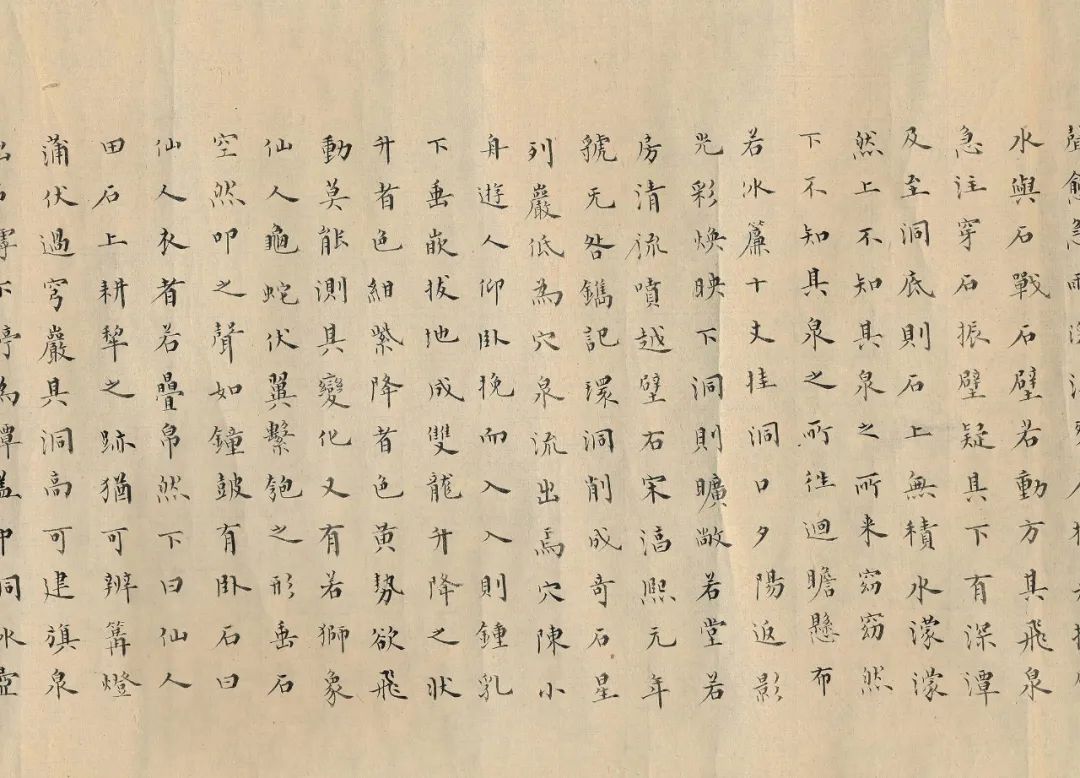 水與石戰石壁若動方其飛泉
急注穿石振壁疑其下有深潭
及至洞底則石上無積水濛濛
然上不知其泉之所来窈窈然
下不知其泉之所往迴瞻懸布
若冰簾十丈挂洞口夕陽返影
光彩煥映下洞則曠敞若堂若
房清流噴越壁右宋淳熙元年
號无咎鐫記環洞削成奇石星
列巖低為穴泉流出焉穴陳小
舟遊人仰卧挽而入入則鍾乳
下垂嵌拔地成雙龍升降之狀
升者色紺紫降者色黄勢欲飛
動莫能測其變化又有若獅象
仙人龜蛇伏翼繫匏之形垂石
空然叩之聲如鐘鼓有卧石曰
仙人衣者若疊帛然下曰仙人
田石上耕犂之跡猶可辨篝燈
蒲伏過穹巖其洞高可建旗泉